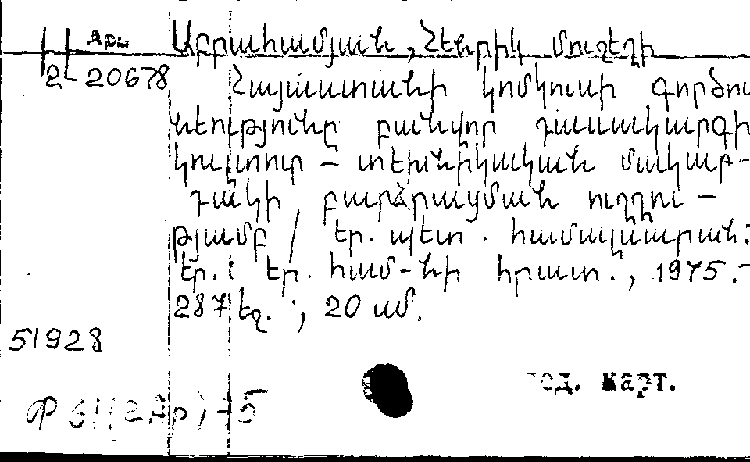 Արм Աբրահամյան, Հենրիկ Մուշեղի
2-20678 Հայաստանի կոմկուսի գործու
նեությունը բանվոր դասակարգի
կուլտուր-տեխնիկական մակար-
դակի բարձրացման ուղղու-
թյամբ / Եր. պետ. համալսարան:
Եր.: Եր. համ-նի հրատ., 1975.-
287 էջ.; 20 սմ.
51928
год. карт.